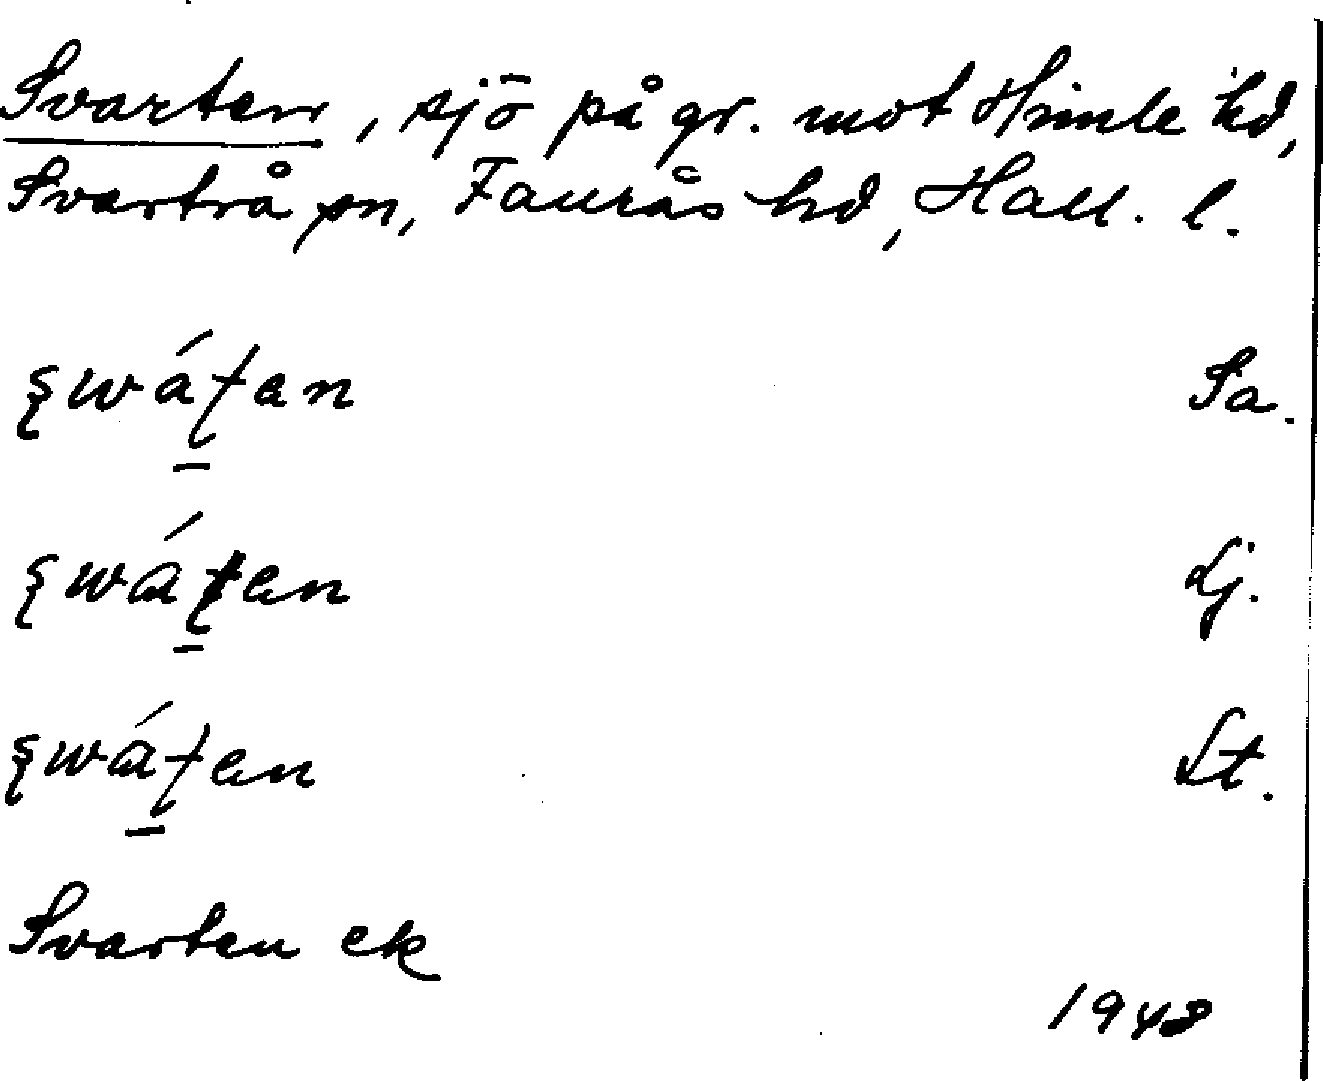 Svarten, sjö på gr. mot Himle hd,
Svartrå sn, Faurås hd, Hall. l.
ꞩwáʈan Sa.
ꞩwáʈan Lj.
ꞩwáʈan St.
Svarten ek
1948